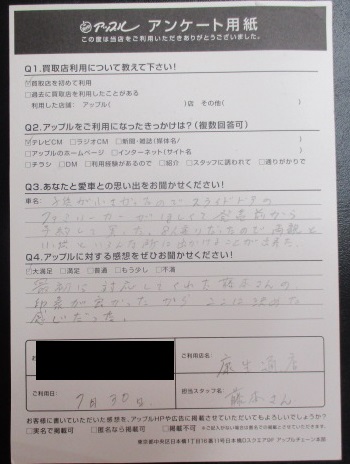 アップル アンケート用紙
この度は当店をご利用いただきありがとうございました。
Q1.買取店利用について教えて下さい!
☑買取店を初めて利用
□過去に買取店を利用したことがある
利用した店舗: アップル( )店 その他( )
Q2.アップルをご利用になったきっかけは?(複数回答可)
☑テレビCM □ラジオCM □新聞・雑誌(媒体名/ )
□アップルのホームページ □インターネット(サイト名 )
□チラシ □DM □利用経験があるので □紹介 □スタッフに誘われて □通りがかりで
Q3.あなたと愛車との思い出をお聞かせください!
車名: 子供が小さかったのでスライドドアの
予約して買った。8人乗りだったので両親と
Q4.アップルに対する感想をぜひお聞かせください!
☑大満足 □満足 □普通 □もう少し □不満
対応してくれた藤本さんの
印象が良かったから ここに決めた
感じだった。
お
ご利用日: 7月30日
ご利用店名: 麻生通店
担当スタッフ名: 藤本さん
お客様に書いていただいた感想を、アップルHPや広告に掲載させていただいてもよろしいでしょうか?
□実名で掲載可 □匿名なら掲載可 □掲載不可
東京都中央区日本橋1丁目16番11号日本橋Dスクエア3F アップルチェーン本部